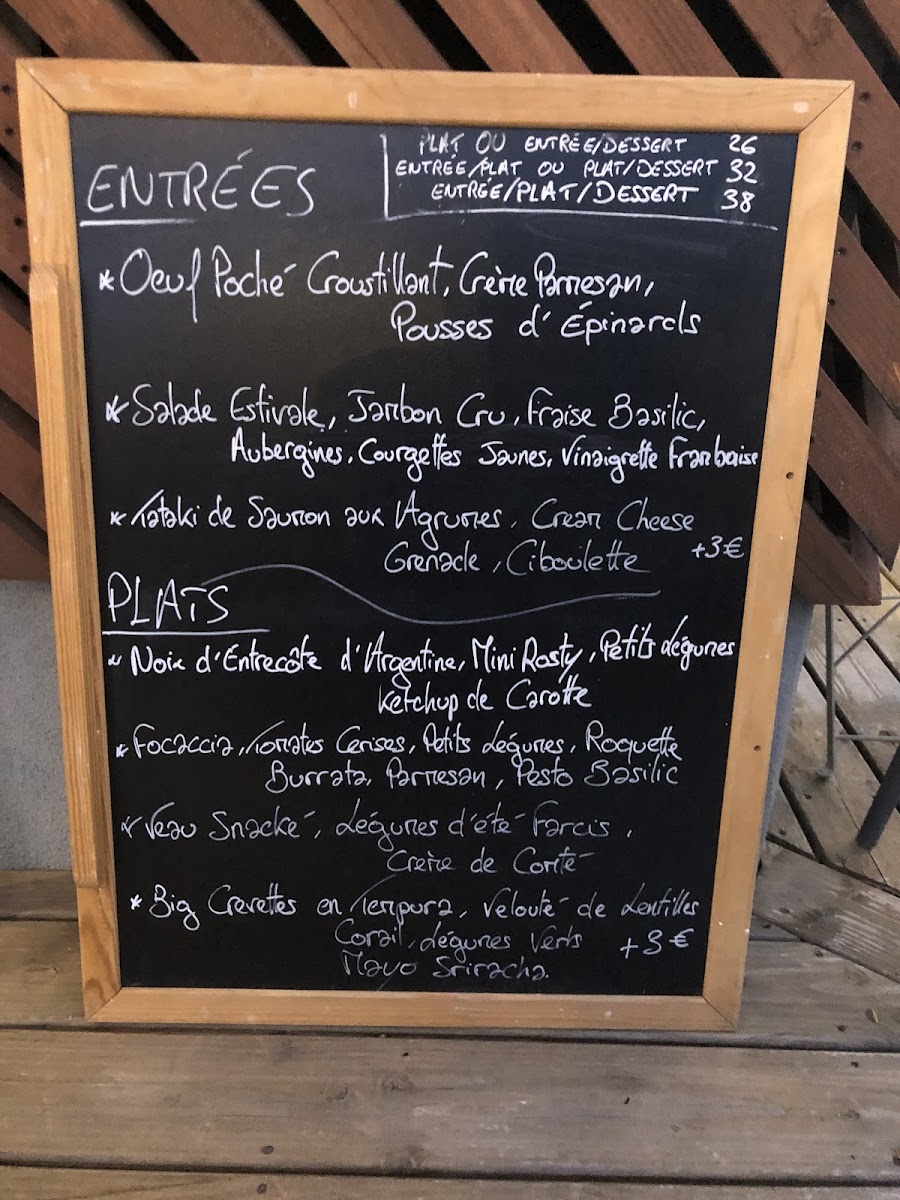 PLAT OU ENTRÉE/DESSERT 26
ENTRÉE/PLAT OU PLAT/DESSERT 32
ENTRÉE/PLAT/DESSERT 38
ENTRÉES
* Oeuf Poché Croustillant, Crème Parmesan,
Pousses d'Épinards
* Salade Estivale, Jambon Cru, Fraise Basilic,
Aubergines, Courgettes Jaunes, Vinaigrette Framboise
* Tataki de Saumon aux Agrumes, Cream Cheese
Grenade, Ciboulette +3€
PLATS
* Noix d'Entrecôte d'Argentine, Mini Rosty, Petits Légumes
Ketchup de Carotte
* Focaccia, Tomates Cerises, Petits Légumes, Roquette
Burrata, Parmesan, Pesto Basilic
* Veau Snacké, Légumes d'été Farcis,
Crème de Comté
* Big Crevettes en Tempura, Velouté de Lentilles
Corail, Légumes Verts +3€
Mayo Sriracha.